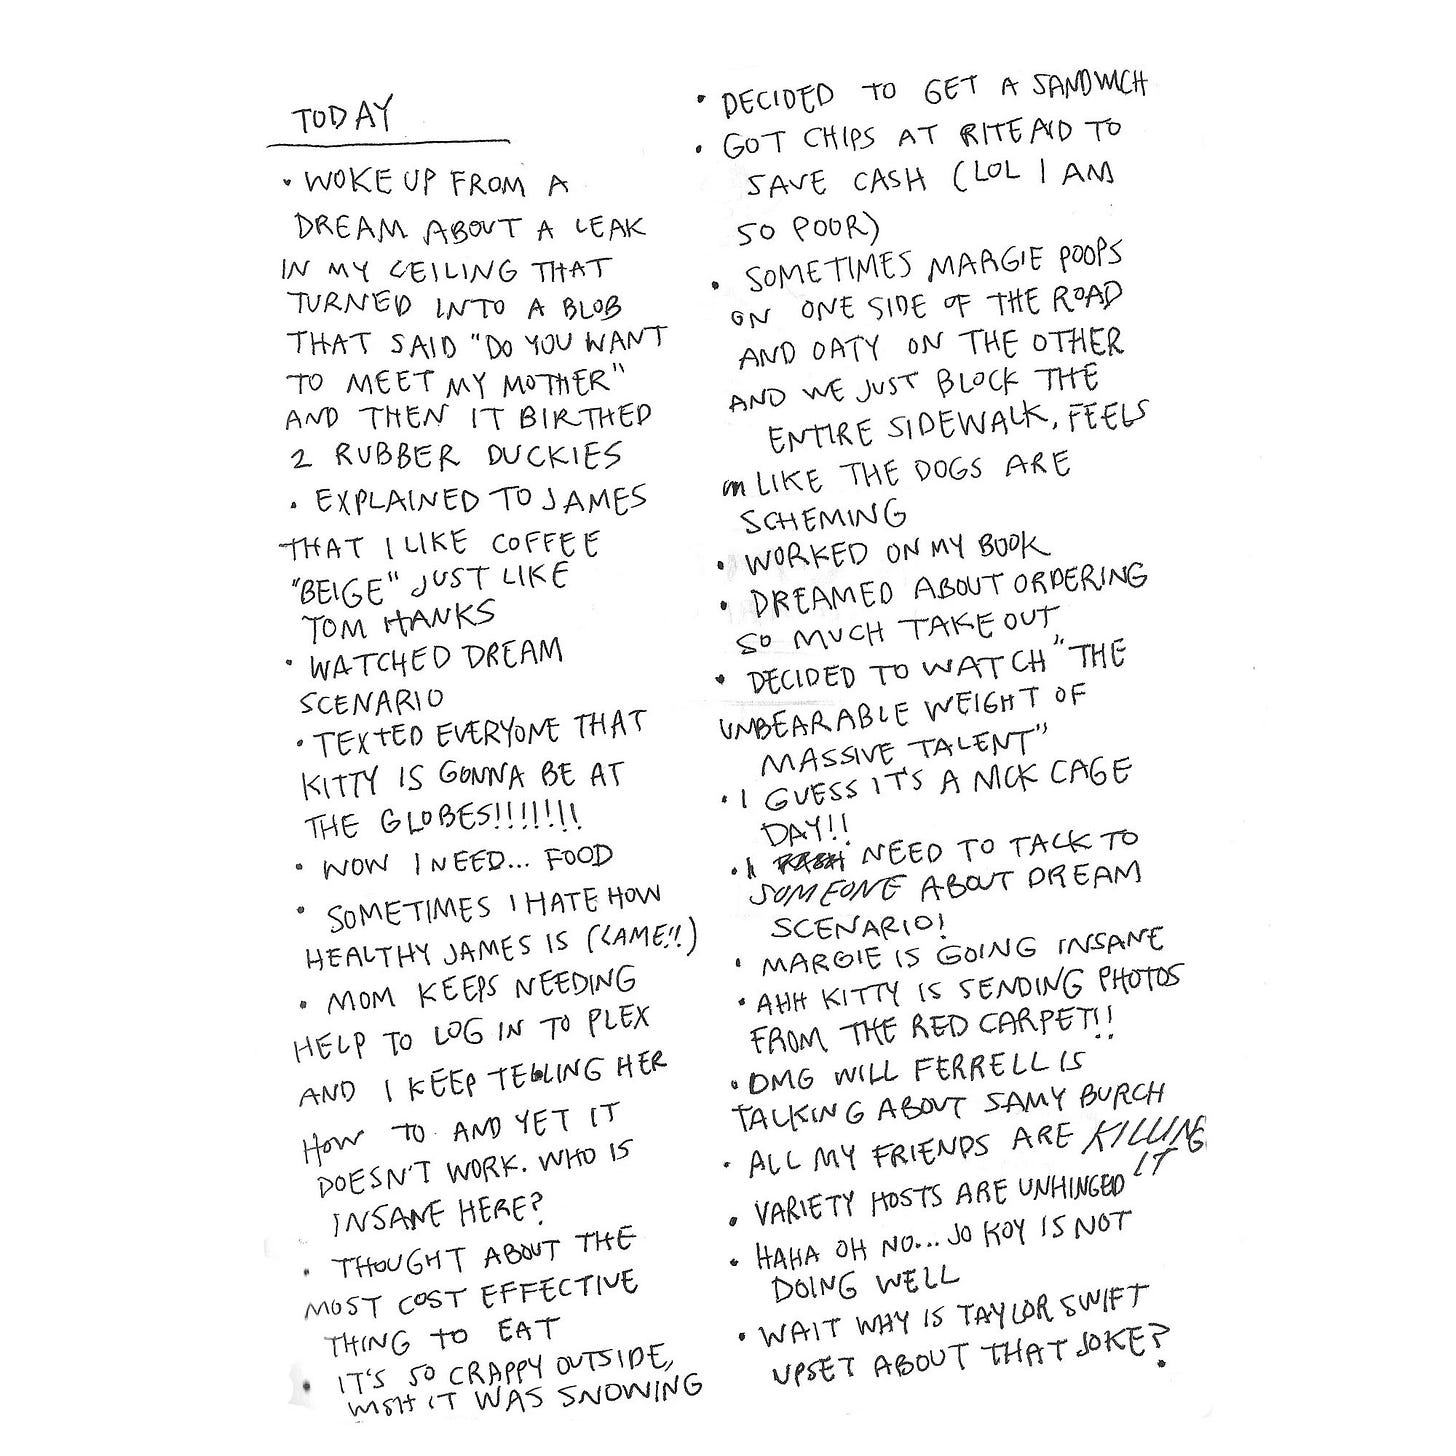 TODAY
• WOKE UP FROM A
DREAM ABOUT A LEAK
IN MY CEILING THAT
TURNED INTO A BLOB
THAT SAID "DO YOU WANT
TO MEET MY MOTHER"
AND THEN IT BIRTHED
2 RUBBER DUCKIES
• EXPLAINED TO JAMES
THAT I LIKE COFFEE
"BEIGE" JUST LIKE
TOM HANKS
• WATCHED DREAM
SCENARIO
• TEXTED EVERYONE THAT
KITTY IS GONNA BE AT
THE GLOBES!!!!!!!
• WOW I NEED... FOOD
• SOMETIMES I HATE HOW
HEALTHY JAMES IS (LAME!!)
• MOM KEEPS NEEDING
HELP TO LOG IN TO PLEX
AND I KEEP TELLING HER
HOW TO AND YET IT
DOESN'T WORK. WHO IS
INSANE HERE?
• THOUGHT ABOUT THE
MOST COST EFFECTIVE
THING TO EAT
• IT'S SO CRAPPY OUTSIDE,
WISH IT WAS SNOWING
• DECIDED TO GET A SANDWICH
• GOT CHIPS AT RITEAID TO
SAVE CASH (LOL I AM
SO POOR)
• SOMETIMES MARGIE POOPS
ON ONE SIDE OF THE ROAD
AND OATY ON THE OTHER
AND WE JUST BLOCK THE
ENTIRE SIDEWALK, FEELS
LIKE THE DOGS ARE
SCHEMING
• WORKED ON MY BOOK
• DREAMED ABOUT ORDERING
SO MUCH TAKE OUT
• DECIDED TO WATCH "THE
UNBEARABLE WEIGHT OF
MASSIVE TALENT"
• I GUESS IT'S A NICK CAGE
DAY!!
• I NEED TO TALK TO
SOMEONE ABOUT DREAM
SCENARIO!
• MARGIE IS GOING INSANE
• AHH KITTY IS SENDING PHOTOS
FROM THE RED CARPET!!
• OMG WILL FERRELL IS
TALKING ABOUT SAMY BURCH
• ALL MY FRIENDS ARE KILLING
IT
• VARIETY HOSTS ARE UNHINGED
• HAHA OH NO... JO KOY IS NOT
DOING WELL
• WAIT WHY IS TAYLOR SWIFT
UPSET ABOUT THAT JOKE?